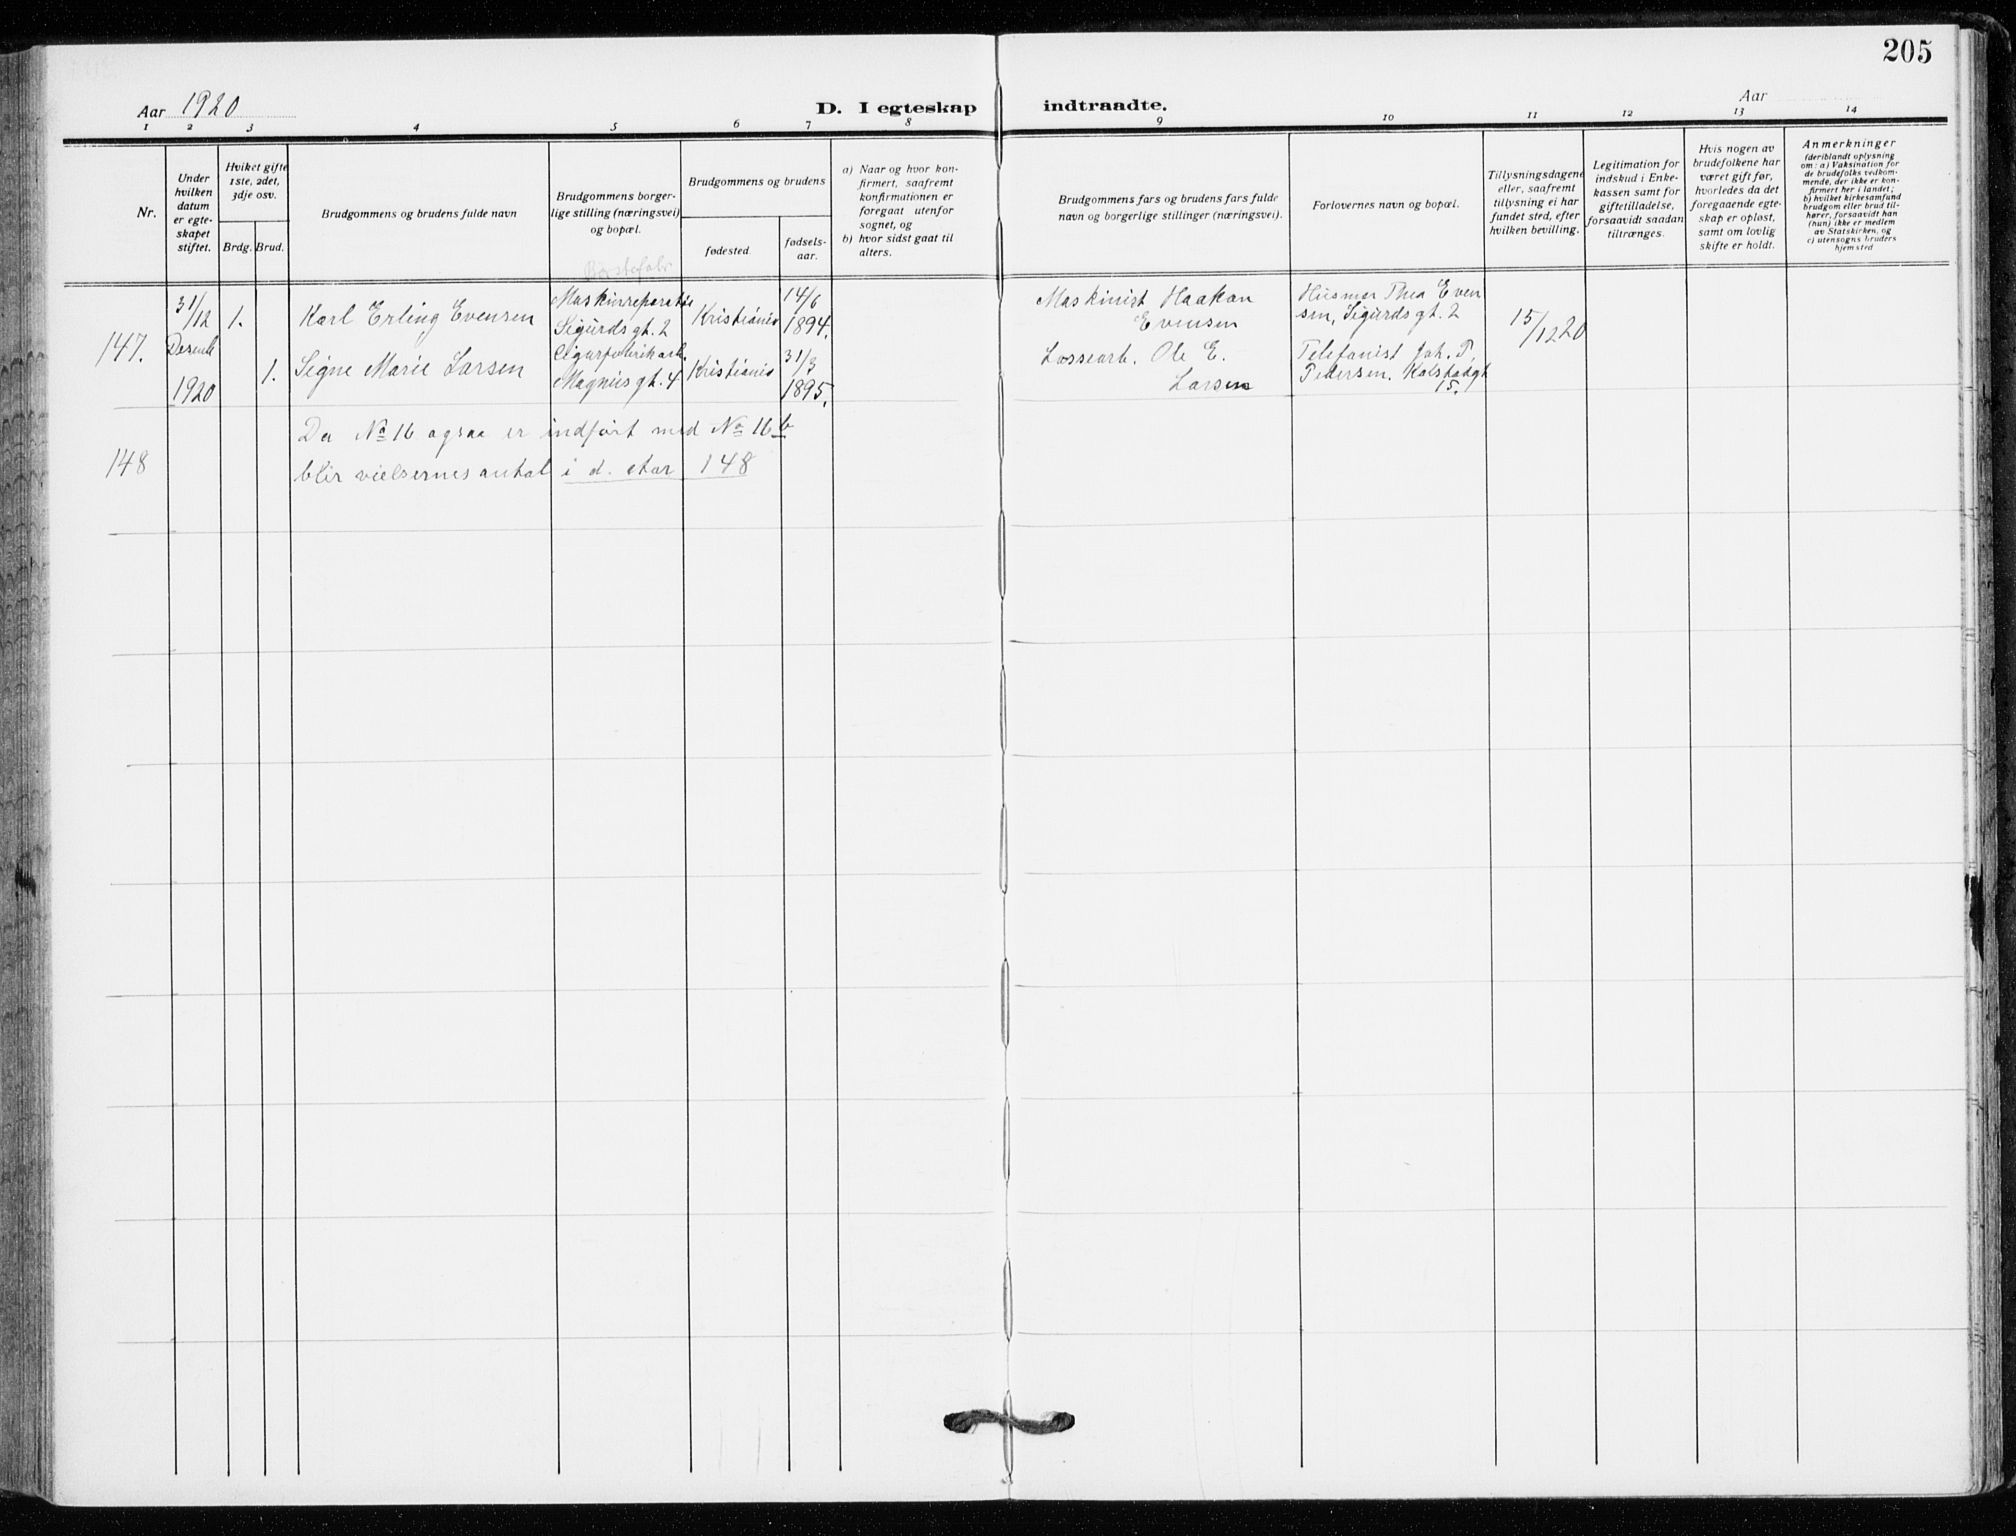 205
Aar 1920
D. I egteskap indtraadte.
Aar
1 2 3 4 5 6 7 8 9 10 11 12 13 14
Nr.
Under
hvilken
datum
er egte-
skapet
stiftet.
Hviket gifte
1ste, 2det,
3dje osv.
Brdg. Brud.
Brudgommens og brudens fulde navn
Brudgommens borger-
lige stilling (næringsvei)
og bopæl.
Brudgommens og brudens
fødested.
fødsels-
aar.
a) Naar og hvor kon-
firmert, saafremt
konfirmationen er
foregaat utenfor
sognet, og
b) hvor sidst gaat til
alters.
Brudgommens fars og brudens fars fulde
navn og borgerlige stillinger (næringsvei).
Forlovernes navn og bopæl.
Tillysningsdagene
eller, saafremt
tillysning ei har
fundet sted, efter
hvilken bevilling.
Legitimation for
indskud i Enke-
kassen samt for
giftetilladelse,
forsaavidt saadan
tiltrænges.
Hvis nogen av
brudefolkene har
været gift før,
hvorledes da det
foregaaende egte-
skap er opløst,
samt om lovlig
skifte er holdt.
Anmerkninger
(deriblandt oplysning
om: a) Vaksination for
de brudefolks vedkom-
mende, der ikke er kon-
firmert her i landet;
b) hvilket kirkesamfund
brudgom eller brud til-
hører, forsaavidt han
(hun) ikke er medlem
av Statskirken, og
c) utensogns bruders
hjemsted
147.
31/12
1920
1.
Karl Erling Evensen
Maskinreparatør
Sigurds gt. 2
Kristiania
14/6
1894.
Maskinist Haakon
Evensen
Husmor Thea Even
sen, Sigurds gt. 2
15/12 20
1.
Signe Marie Larsen
Cigarfabrikarb.
Magnus gt. 4
Kristiania
31/3
1895.
Lossearb. Ole E.
Larsen
Telefonist Joh. P.
Pedersen, Kalstadgt
15.
148
Da No 16 ogsaa er indført med No 16 b
blir vielsernes antal i d. etar 148